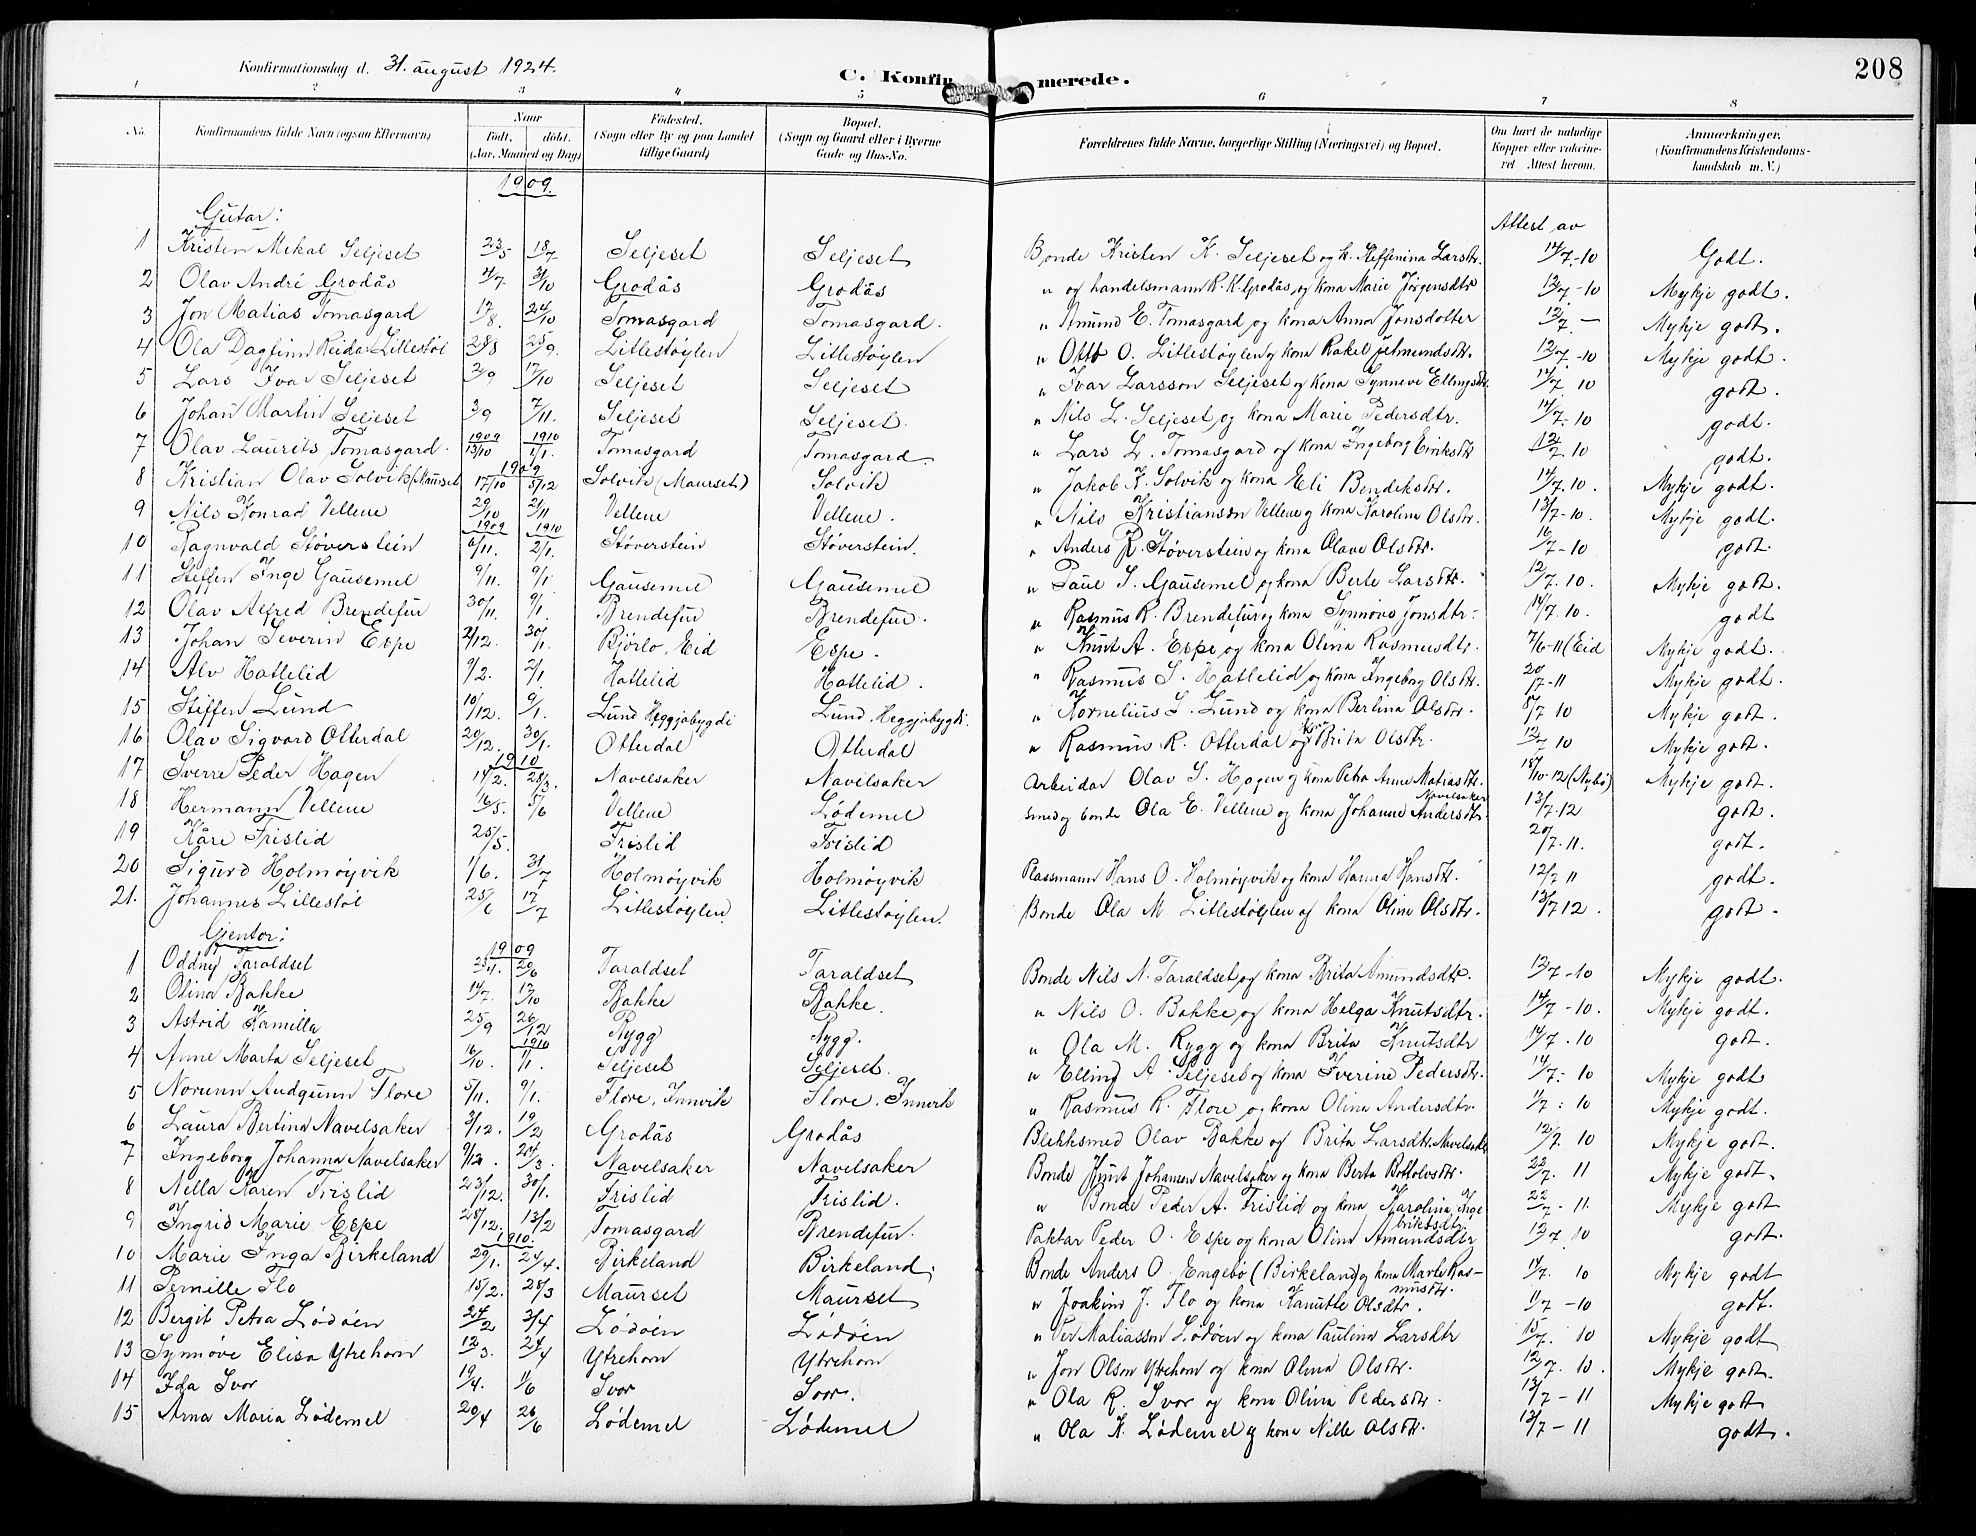 208
Konfirmationsdag d. 31. august 1924.
C. Konfirmerede.
1 2 3 4 5 6 7 8
No. Konfirmandens fulde Navn (ogsaa Efternavn) Naar født. døbt. (Aar, Maaned og Dag) Fødested. (Sogn eller By og paa Landet tillige Gaard) Bopæl. (Sogn og Gaard eller i Byerne Gade og Hus-No. Forældrenes fulde Navne, borgerlige Stilling (Næringsvei) og Bopæl. Om havt de naturlige Kopper eller vakcineret Attest herom. Anmærkninger. (Konfirmandens Kristendomskundskab m. V.)
1909.
Gutar: Attest av
1 Kristen Mekal Seljeset 23/5 18/7 Seljeset Seljeset Bonde Kristen K. Seljeset og k. Steffenina Larsdtr. 14/7-10 Godt.
2 Olav André Grodås 4/7 31/10 Grodås Grodås " og handelsmann R. K. Grodås og kona Marie Jørgensdtr 12/7-10 Mykje godt.
3 Jon Matias Tomasgard 17/8. 24/10 Tomasgard Tomasgard. " Amund E. Tomasgard og kona Anna Jonsdotter 12/7 - Mykje godt.
4 Ola Dagfinn Reidar Lillestøl 28/8 25/9. Litlestøylen Litlestøylen " Otto O. Litlestøylen og kona Rakel 12/7-10 Mykje godt.
5 Lars Ivar Seljeset 2/9 17/10 Seljeset Seljeset " Ivar Larsson Seljeset og kona Synneve Ellingsdtr. 14/7. 10 godt.
6 Johan Martin Seljeset 3/9 7/11. Seljeset Seljeset. " Nils L. Seljeset og kona Marie Pedersdtr. 14/7. 10 godt.
7 Olav Laurits Tomasgard. 1909 13/10 1910 1/1. Tomasgard Tomasgard. " Lars L. Tomasgard og kona Ingeborg Eiriksdtr 12/7 10 godt.
1909
8 Kristian Olav Solvik (Maurset 17/10 5/12 Solvik (Maurset) Solvik " Jakob K. Solvik og kona Eli Bendiksdtr. 14/7. 10. Mykje godt.
9 Nils Konrad Vellene 29/10 21/11 Vellene Vellene. " Nils Kristianson Vellene og kona Karolina Olsdtr. 13/7-10. Mykje godt.
1909 1910
10 Ragnvald Støverstein 6/11. 2/1. Støverstein Støverstein. " Anders R. Støverstein og kona Olave Olsdtr. 16/7-10 godt.
11 Steffen Inge Gausemel 9/11. 9/1 Gausemel Gausemel " Paul S. Gausemel og kona Berte Larsdtr. 12/7. 10. Mykje godt.
12 Olav Alfred Brendefur 30/11. 9/1. Brendefur Brendefur. " Rasmus R. Brendefur og kona Synnøve Jonsdtr. 14/7. 10. godt
13 Johan Severin Espe 2/12. 30/1. Bjørlo, Eid Espe. " Knut A. Espe og kona Olina Rasmusdtr. 7/6-11 (Eid Mykje godt.
14 Alv Hatlelid 9/2. 2/1 Hatlelid Hatlelid. " Rasmus S. Hatlelid og kona Ingeborg Olsdtr. 20/7-11 Mykje godt.
15 Steffen Lund 10/12. 9/1. Lund Heggjabygdi Lund. Heggjabygdi. " Kornelius S. Lund og kona Berlina Olsdtr. 8/7 10 Mykje godt.
16 Olav Sigvard Otterdal 20/12. 30/1. Otterdal Otterdal " Rasmus R. Otterdal og Brita Olsdtr. 12/7 10 Mykje godt.
1910
17 Sverre Peder Hagen 14/2. 28/3. Navelsaker Navelsaker Arbeidar Olav S. Hagen og kona Petra Anne Matiasdtr. 18/10-12 (Nybø) Mykje godt.
18 Hermann Vellene 16/5. 5/6 Vellene Lødemel Smed og bonde Ola E. Vellene og kona Johanne Andersdtr. Navelsaker 13/7.12 godt.
19 Kåre Frislid 25/5. Frislid Frislid 20/7-11. godt.
20 Sigurd Holmøyvik 1/6. 31/7 Holmøyvik Holmøyvik Plassmann Hans O. Holmøyvik og kona Hanna Hansdtr. 12/7 11 godt.
21. Johannes Lillestøl 25/6 17/7 Litlestøylen Litlestøylen. Bonde Ola M. Litlestøylen og kona Oline Olsdtr. 13/7 12. godt.
Gjentor:
1909
1 Oddny Taraldset 20/6 Taraldset Taraldset Bonde Nils N. Taraldset og kona Brita Amundsdtr. 13/7-10 Mykje godt.
2 Olina Bakke 14/7. 17/10 Bakke Bakke. " Nils O. Bakke, og kona Helga Knutsdtr. 14/7-10. Mykje godt.
3 Astrid Kamilla 25/9 26/12 Rygg Rygg. " Ola M. Rygg og kona Brita Knutsdtr 14/7. 10 godt.
1910
4 Anne Marta Seljeset 16/10. 1/1. Seljeset Seljeset. " Elling A. Seljeset og kona Iverine Pedersdtr. 14/7- 10 Mykje godt
5 Norunn Audgunn Flore 5/11. 9/1. Flore, Innvik Flore, Innvik " Rasmus R. Flore og kona Olina Andersdtr. 11/7: 10 Mykje godt.
6 Laura Bertina Navelsaker 3/12. 19/2 Grodås Grodås Blekksmed Olav Bakke og Brita Larsdtr. Navelsaker 12/7. 10 Mykje godt.
7 Ingeborg Johanna Navelsaker 9/12. 24/3. Navelsaker Navelsaker Bonde Knut Johannes Navelsaker og kona Berta Bottolvsdtr. 22/7. 11 Mykje godt.
8 Nella Karen Frislid 23/12. 30/1. Frislid Frislid. " Bonde Peder A. Frislid og kona Karolina Ingebriktsdtr. 22/7-11. Mykje godt
9 Ingrid Marie Espe 28/12. 13/2 Tomasgard Brendefur. Paktar Peder O. Espe og kona Olina Amundsdtr 13/7 10 godt.
1910.
10 Marie Inga Birkeland 29/1. 24/4. Birkeland Birkeland. Bonde Anders O. Engebø (Birkeland) og kona Marte Rasmusdtr. 14/7. 10 Mykje godt
11 Pernille Flo 15/2. 28/3 Maurset Maurset " Joakim J. Flo og kona Kanutte Olsdtr. 11/7-10 godt.
12 Bergit Petra Lødøen 24/2 3/4 Lødøen Lødøen " Per Matiasson Lødøen og kona Paulina Larsdtr 15/7. 10 Mykje godt
13 Synnøve Elisa Ytrehorn 12/3. 24/4 Ytrehorn Ytrehorn " Jon Olson Ytrehorn og kona Olina Olsdtr. 12/7. 10. Mykje godt.
14 Ida Svor 19/4. 1/6 Svor Svor. " Ola R. Svor og kona Olina Pedersdtr. 13/7-11 Mykje godt
15 Arna Maria Lødemel 20/4 26/6 Lødemel Lødemel " Ola K. Lødemel og kona Nille Olsdtr. 13/7-11 godt.